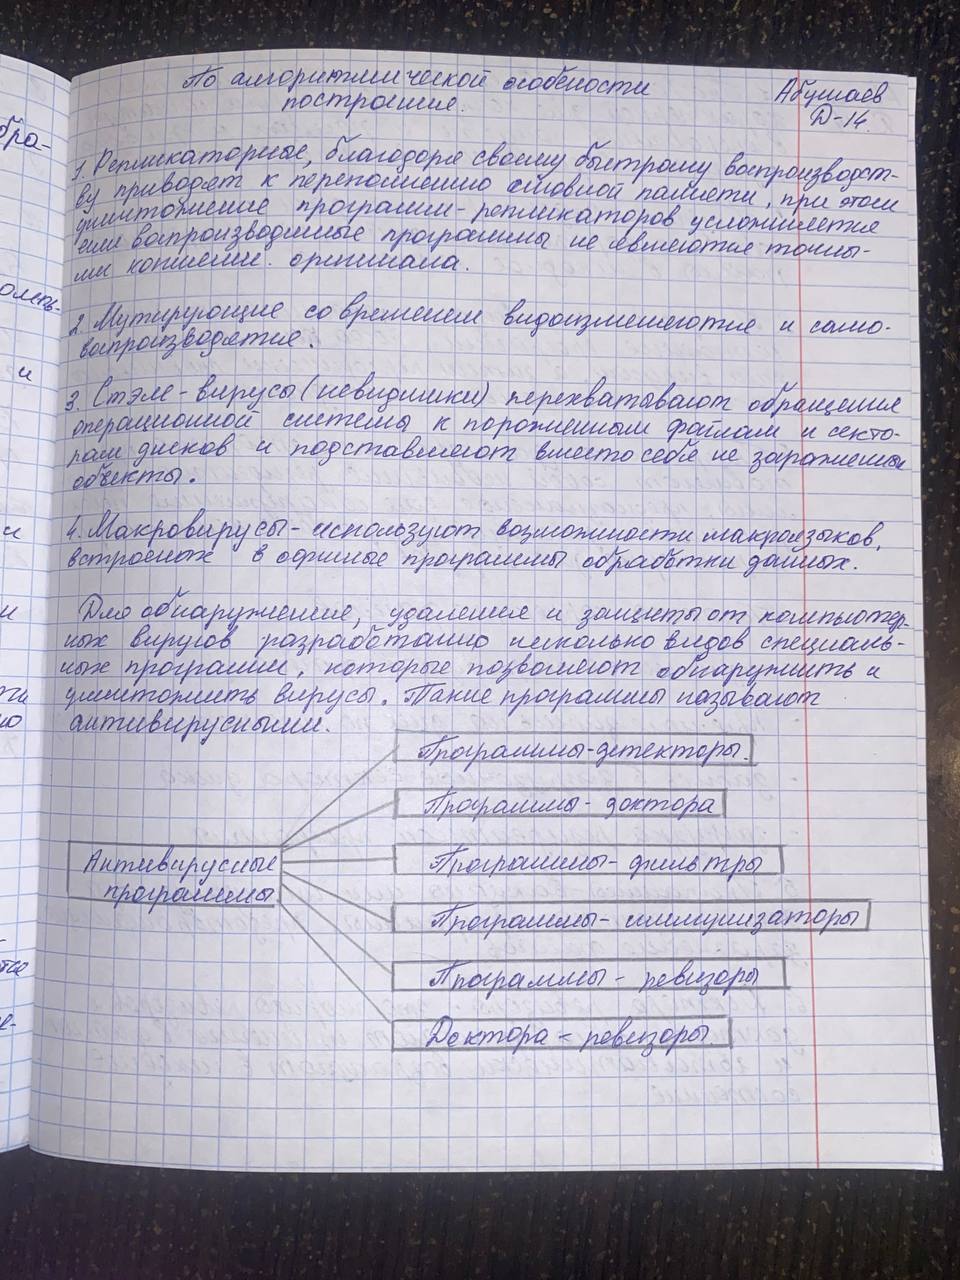 По алгоритмической особености
построение.
Абушаев
Д-14.
1. Репликаторные, благодаря своему быстрому воспроизводст-
ву приводят к переполнению основной памяти, при этом
уничтожение программ-репликаторов усложняется
если воспроизводимые программы не являются точны-
ми копиями. оригинала.
2. Мутирующие со временем видоизменяются и само-
воспроизводятие.
3. Стэлс-вирусы (невидимки) перехватывают обращения
операционной системы к пораженным файлам и секто-
рам дисков и подставляют вместо себя не зараженные
объекты.
4. Макровирусы - используют возможности макроязыков,
встроеных в офисные программы обработки данных.
Для обнаружения, удаления и защиты от компьютер-
ных вирусов разработано несколько видов специаль-
ных программ, которые позволяют обнаружить и
уничтожить вирусы. Такие программы называют
антивирусными.
Программы-детекторы.
Программы-доктора
Антивирусные
программы
Программы-фильтры
Программы-иммунизаторы
Программы-ревизоры
Доктора-ревизоры
бра-
и
и
и